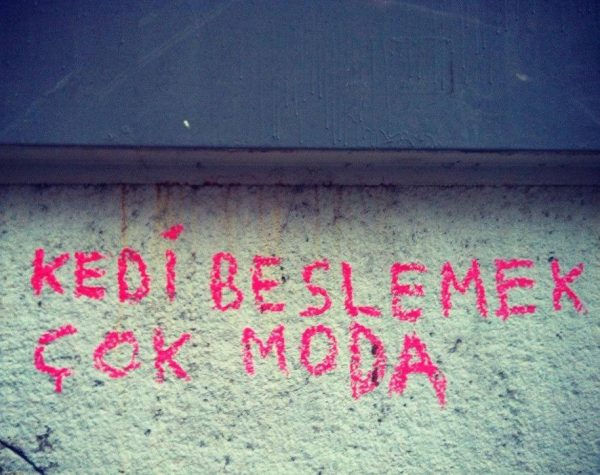 KEDİ BESLEMEK
ÇOK MODA